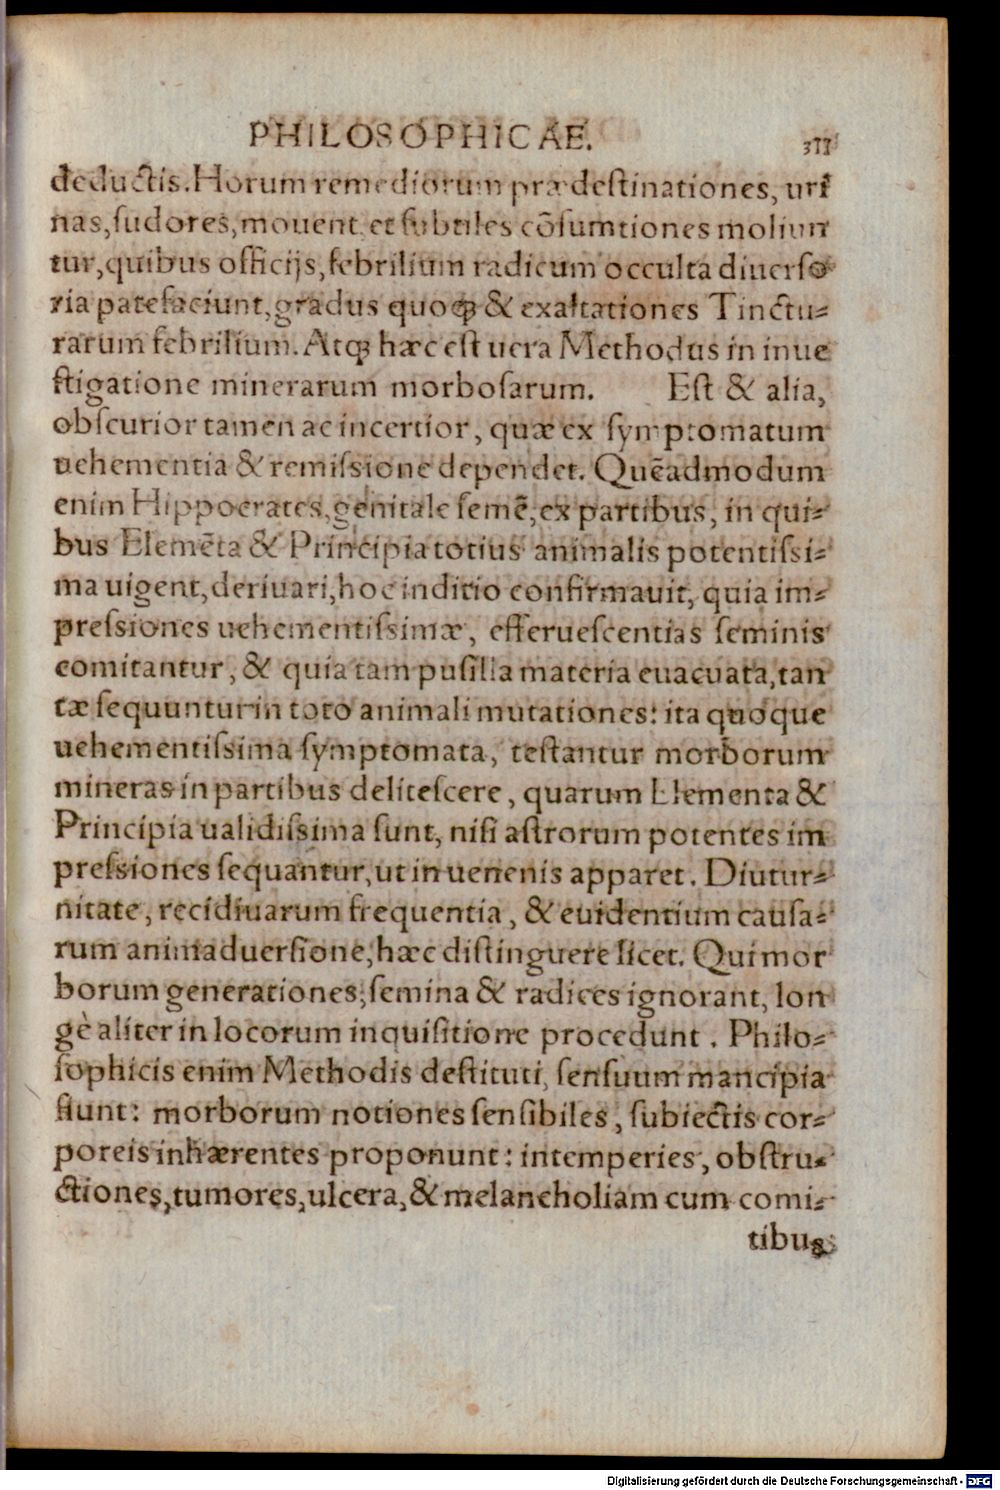 PHILOSOPHICAE. 377
deductis. Horum remediorum prædestinationes, uri
nas, sudores, mouent et subtiles cõsumtiones moliun
tur, quibus officijs, febrilium radicum occulta diuerso
ria patefaciunt, gradus quoqꝫ & exaltationes Tinctu-
rarum febrilium. Atqꝫ hæc est uera Methodus in inue
stigatione minerarum morbosarum. Est & alia,
obscurior tamen ac incertior, quæ ex symptomatum
uehementia & remissione dependet. Quẽadmodum
enim Hippocrates, genitale semẽ, ex partibus, in qui-
bus Elemẽta & Principia totius animalis potentissi-
ma uigent, deriuari, hoc inditio confirmauit, quia im-
pressiones uehementissimæ, efferuescentias seminis
comitantur, & quia tam pusilla materia euacuata, tan
tæ sequuntur in toto animali mutationes: ita quoque
uehementissima symptomata, testantur morborum
mineras in partibus delitescere, quarum Elementa &
Principia ualidissima sunt, nisi astrorum potentes im
pressiones sequantur, ut in uenenis apparet. Diutur-
nitate, recidiuarum frequentia, & euidentium causa-
rum animaduersione, hæc distinguere licet. Qui mor
borum generationes, semina & radices ignorant, lon
gè aliter in locorum inquisitione procedunt. Philo-
sophicis enim Methodis destituti, sensuum mancipia
fiunt: morborum notiones sensibiles, subiectis cor-
poreis inhærentes proponunt: intemperies, obstru-
ctiones, tumores, ulcera, & melancholiam cum comi-
tibus
Digitalisierung gefördert durch die Deutsche Forschungsgemeinschaft - DFG